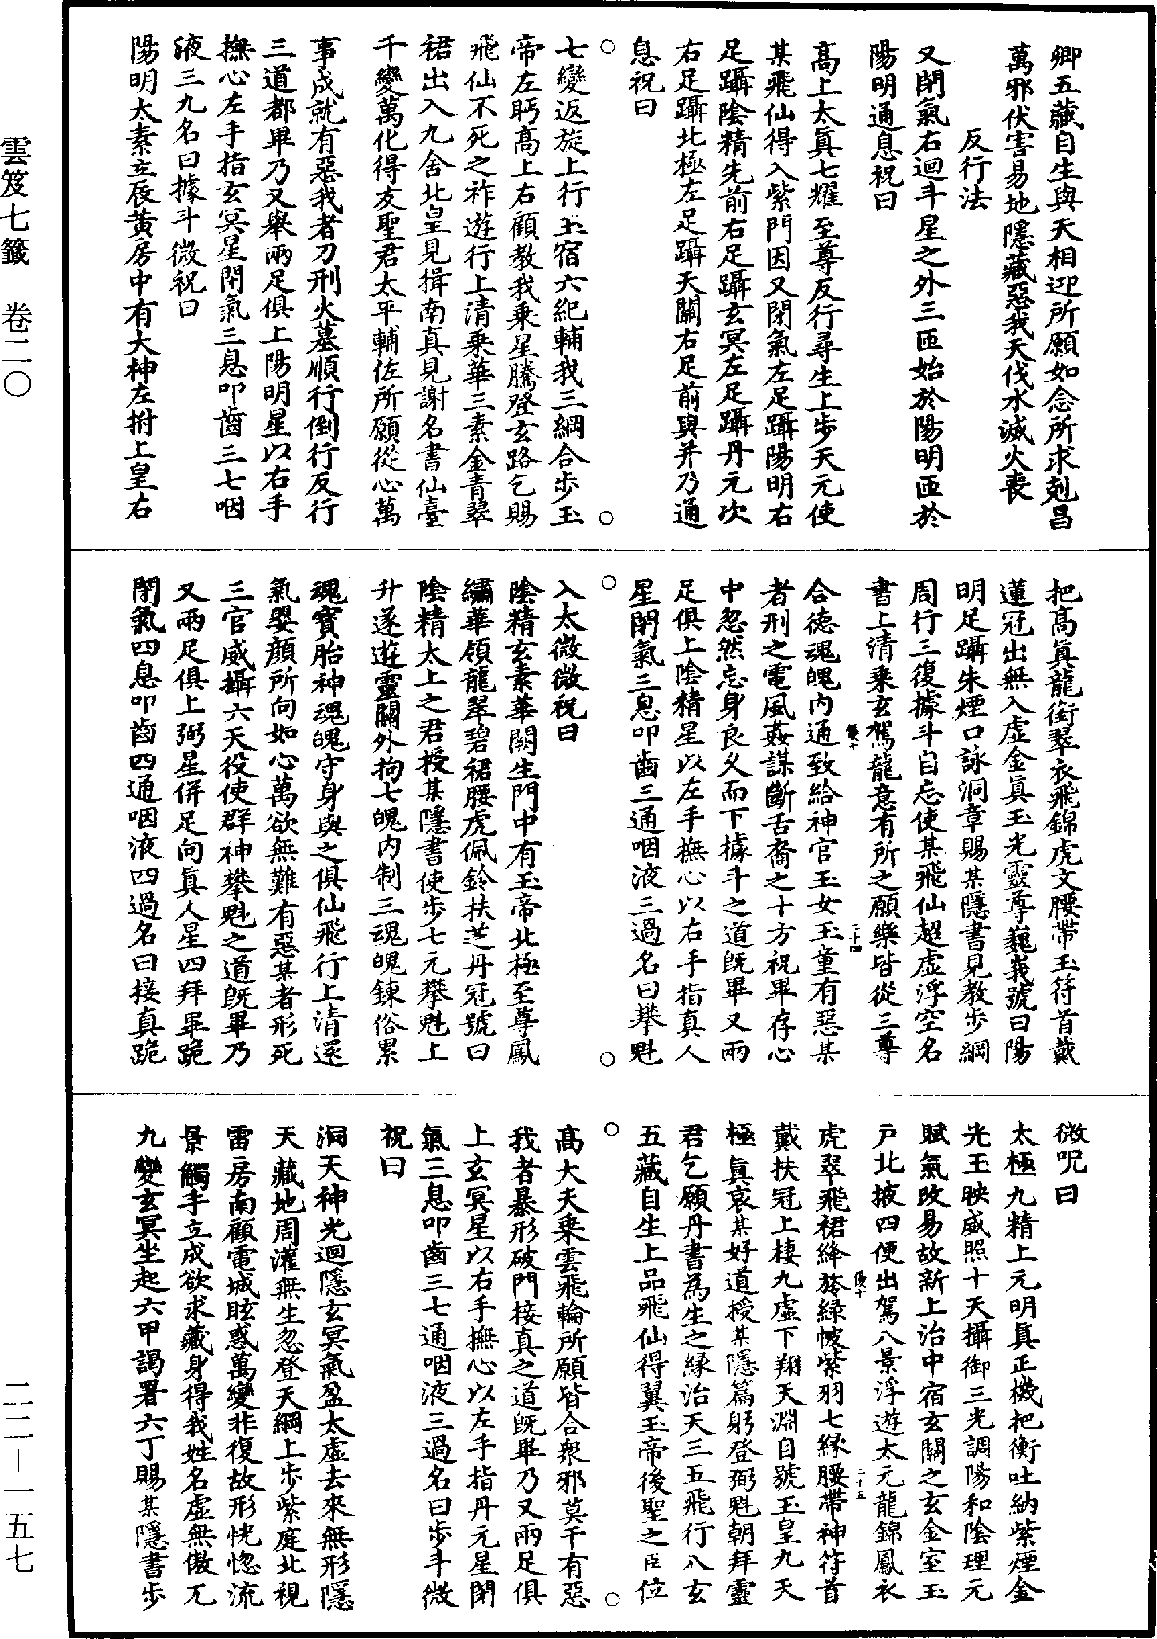 卿五藏自生與天相迎所願如念所求剋昌
萬邪伏害易地隱藏惡我天伐水滅火喪
反行法
又閉氣右迴斗星之外三匝始於陽明匝於
陽明通息祝曰
高上太真七耀至尊反行尋生上步天元使
某飛仙得入紫門因又閉氣左足躡陽明右
足躡陰精先前右足躡玄冥左足躡丹元次
右足躡北極左足躡天關右足前與并乃通
息祝曰
七變返旋上行玉宿六紀輔我三綱合步玉
帝左眄高上右顧教我乘星騰登玄路乞賜
飛仙不死之祚遊行上清乘華三素金青翠
裙出入九舍北皇見揖南真見謝名書仙臺
千變萬化得友聖君太平輔佐所願從心萬
事成就有惡我者刀刑火墓順行倒行反行
三道都畢乃又舉兩足俱上陽明星以右手
撫心左手指玄冥星閉氣三息叩齒三七咽
液三九名曰據斗微祝曰
陽明太素玄辰黃房中有大神左拊上皇右
把高真龍銜翠衣飛錦虎文腰帶玉符首戴
蓮冠出無入虛金真玉光靈尊巍峩號曰陽
明足躡朱煙口詠洞章賜某隱書見教步綱
周行三復據斗自忘使某飛仙超虛浮空名
書上清乘玄駕龍意有所之願樂皆從三尊
合德魂魄內通致給神官玉女玉童有惡某
者刑之電風姦謀斷舌裔之十方祝畢存心
中忽然忘身良久而下據斗之道既畢又兩
足俱上陰精星以左手撫心以右手指真人
星閉氣三息叩齒三通咽液三過名曰攀魁
入太微微祝曰
陰精玄素華闕生門中有玉帝北極至尊鳳
繡華領龍翠碧裙腰虎佩鈴扶芝丹冠號曰
陰精太上之君授某隱書使步七元攀魁上
升遂遊靈關外拘七魄內制三魂魄鍊俗累
魂寶胎神魂魄守身與之俱仙飛行上清還
氣嬰顏所向如心萬欲無難有惡某者形死
三官威攝六天役使群神攀魁之道既畢乃
又兩足俱上弼星併足向真人星四拜畢跪
閉氣四息叩齒四通咽液四過名曰接真跪
微呪曰
太極九精上元明真正機把衡吐納紫煙金
光玉映威照十天攝御三光調陽和陰理元
賦氣改易故新上治中宿玄關之玄金室玉
戶北掖四便出駕八景浮遊太元龍錦鳳衣
虎翠飛裙絳旍綠帔紫羽七緣腰帶神符首
戴扶冠上棲九虛下翔天淵自號玉皇九天
極真哀某好道授某隱篇躬登弼魁朝拜靈
君乞願丹書為生之緣治天三五飛行八玄
五藏自生上品飛仙得翼玉帝後聖之臣位
高大夫乘雲飛輪所願皆合眾邪莫干有惡
我者暴形破門接真之道既畢乃又兩足俱
上玄冥星以右手撫心以左手指丹元星閉
氣三息叩齒三七通咽液三過名曰步斗微
祝曰
洞天神光迴隱玄冥氣盈太虛去來無形隱
天藏地周灌無生忽登天綱上步紫庭北視
雷房南顧電城眩惑萬變非復故形恍惚流
景觸手立成欲求藏身得我姓名虛無傲兀
九變玄冥坐起六甲謁署六丁賜某隱書步
雲笈七籤 卷二〇
二二—一五七